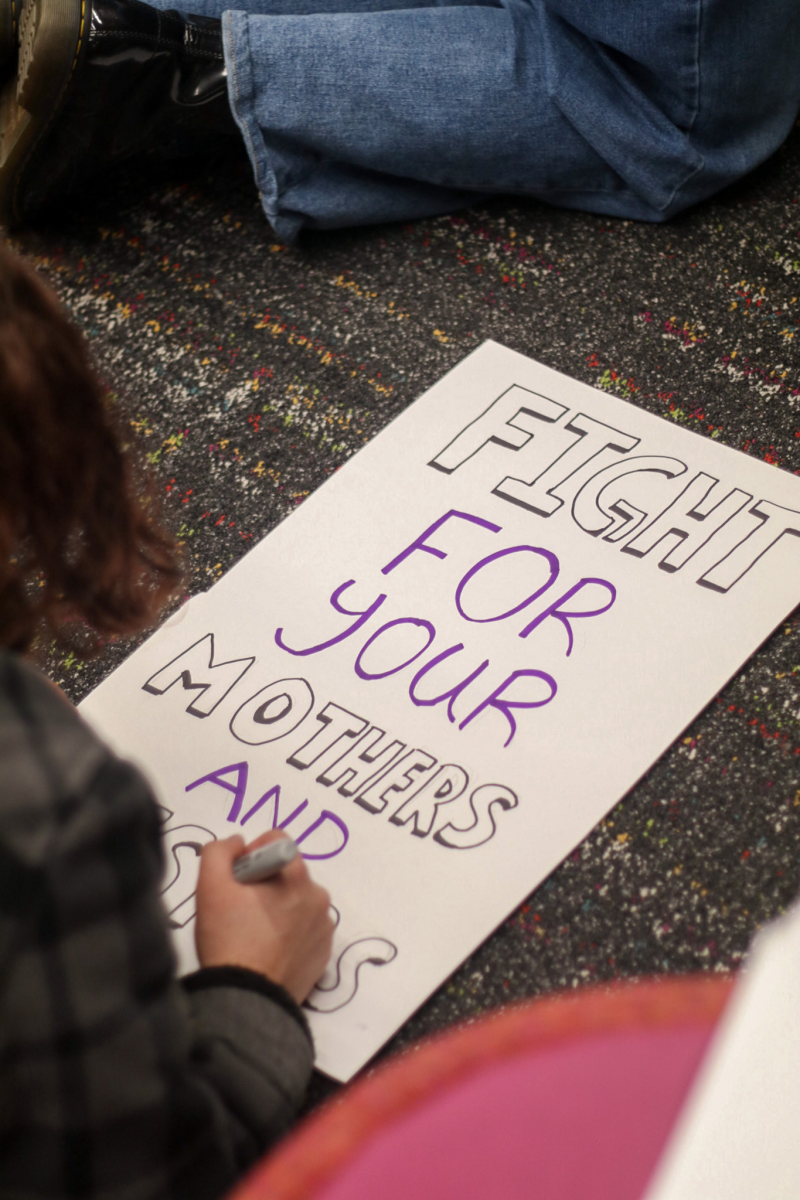 FIGHT
FOR
YOUR
MOTHERS
AND